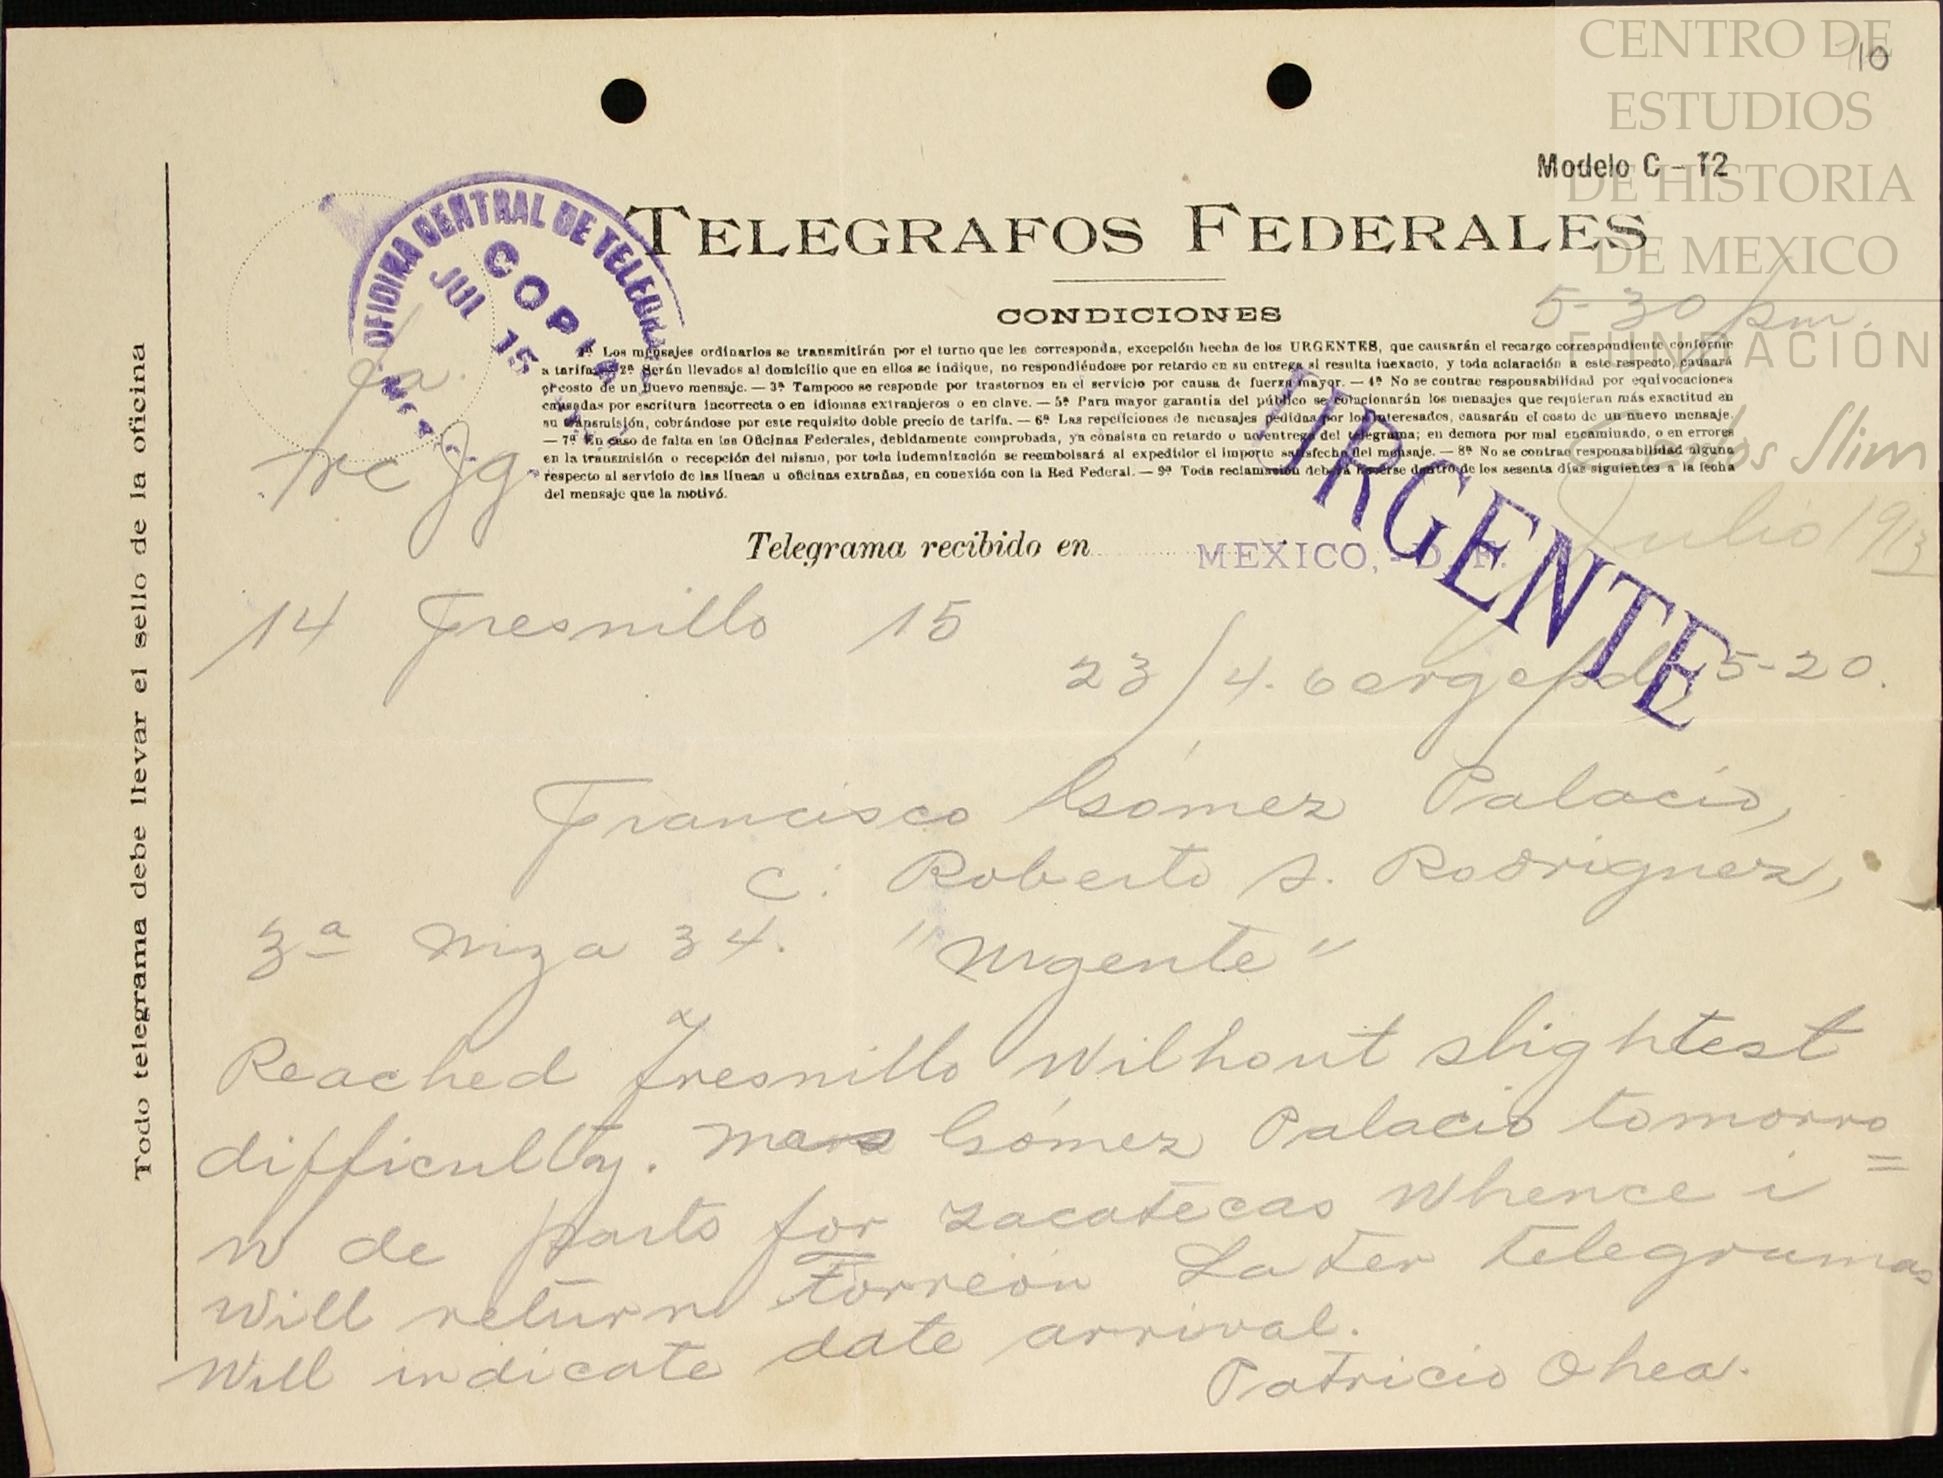 CENTRO DE
ESTUDIOS
DE HISTORIA
DE MEXICO
FUNDACIÓN
Carlos Slim
10
Modelo C - T2
TELEGRAFOS FEDERALES
OFICINA CENTRAL DE TELEGR
COPIA
JUL 15
CONDICIONES
5-30 pm.
1ª Los mensajes ordinarios se transmitirán por el turno que les corresponda, excepción hecha de los URGENTES, que causarán el recargo correspondiente conforme
a tarifa.— 2ª Serán llevados al domicilio que en ellos se indique, no respondiéndose por retardo en su entrega si resulta inexacto, y toda aclaración a este respecto, causará
el costo de un nuevo mensaje. — 3ª Tampoco se responde por trastornos en el servicio por causa de fuerza mayor. — 4ª No se contrae responsabilidad por equivocaciones
causadas por escritura incorrecta o en idiomas extranjeros o en clave. — 5ª Para mayor garantía del público se colacionarán los mensajes que requieran más exactitud en
su transmisión, cobrándose por este requisito doble precio de tarifa. — 6ª Las repeticiones de mensajes pedidas por los interesados, causarán el costo de un nuevo mensaje.
— 7ª En caso de falta en las Oficinas Federales, debidamente comprobada, ya consista en retardo o no entrega del telegrama; en demora por mal encaminado, o en errores
en la transmisión o recepción del mismo, por toda indemnización se reembolsará al expedidor el importe satisfecho del mensaje. — 8ª No se contrae responsabilidad alguna
respecto al servicio de las líneas u oficinas extrañas, en conexión con la Red Federal. — 9ª Toda reclamación deberá hacerse dentro de los sesenta días siguientes a la fecha
del mensaje que la motivó.
URGENTE
Julio 1913
Telegrama recibido en MEXICO, - D. F.
14 Fresnillo 15
23/4. 5-20.
Francisco Gómez Palacio,
C: Roberto S. Rodriguez,
3ª Niza 34. "Urgente"
Reached Fresnillo Wilhout slightest
difficulty. Gómez Palacio tomorro=
w de parts for zacatecas Whence i
Will return Torreón Later telegramas
Will indicate date arrival.
Patricio Ohea.
Todo telegrama debe llevar el sello de la oficina